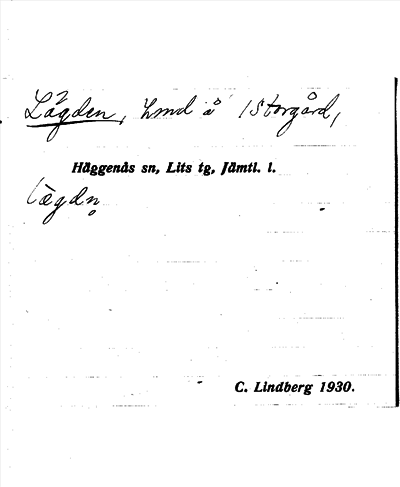 Lägden, hmd å Storgård,
Häggenås sn, Lits tg, Jämtl. l.
lägdn̥
C. Lindberg 1930.